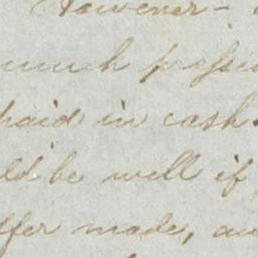 However -
much
paid in cash
ld be well if
ffer made, an